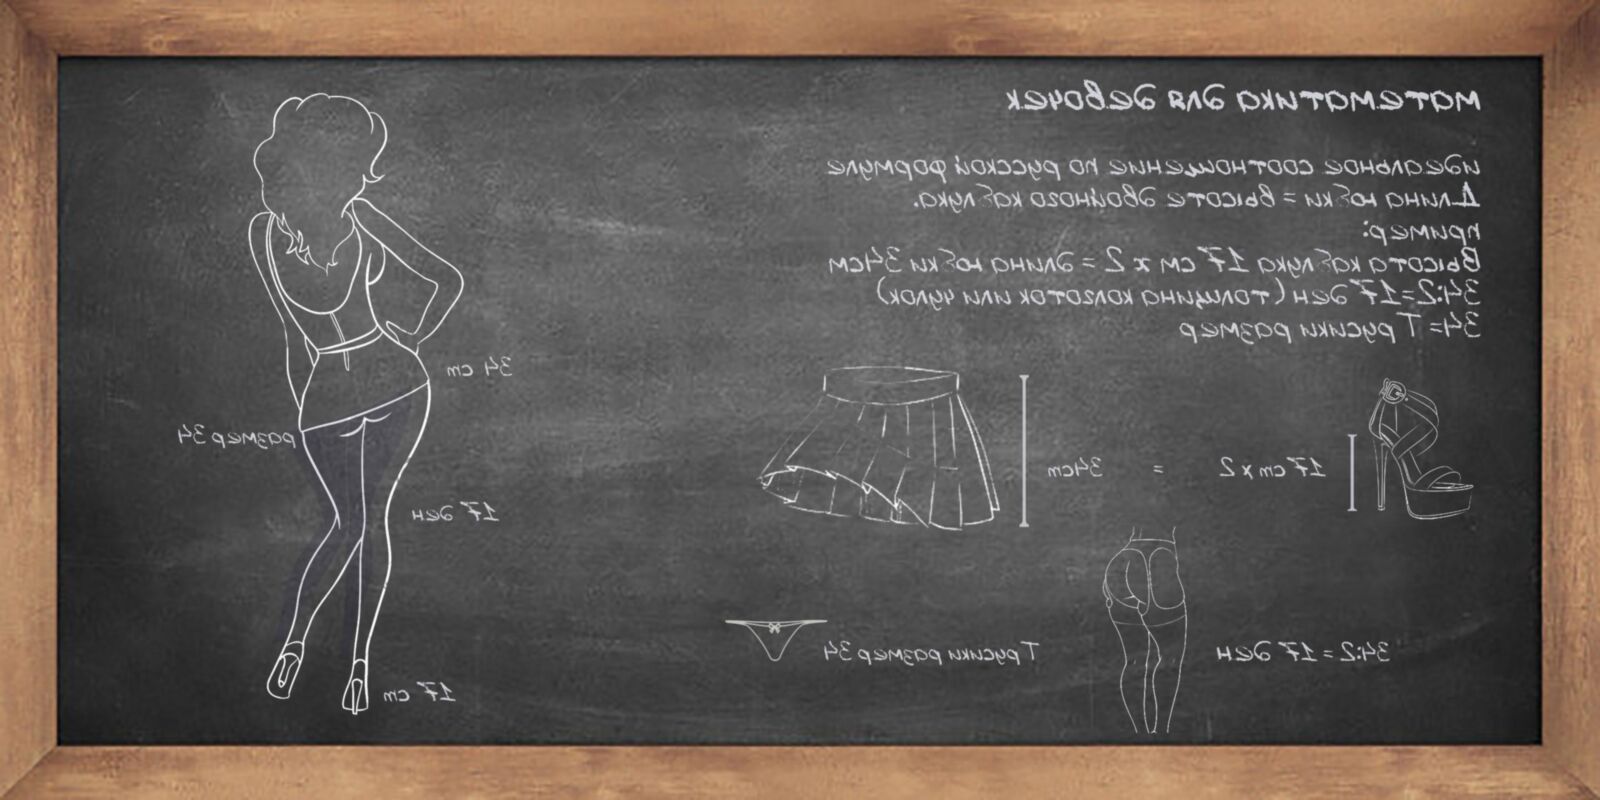 математика для девочек
идеальное соотношение по русской формуле
Длина юбки = высоте двойного каблука.
пример:
Высота каблука 17 см x 2 = длина юбки 34см
34:2=17 ден (толщина колготок или чулок)
34= Трусики размер
17 cm x 2 = 34cm
34:2 = 17 ден
Трусики размер 34
34 cm
размер 34
17 ден
17 cm